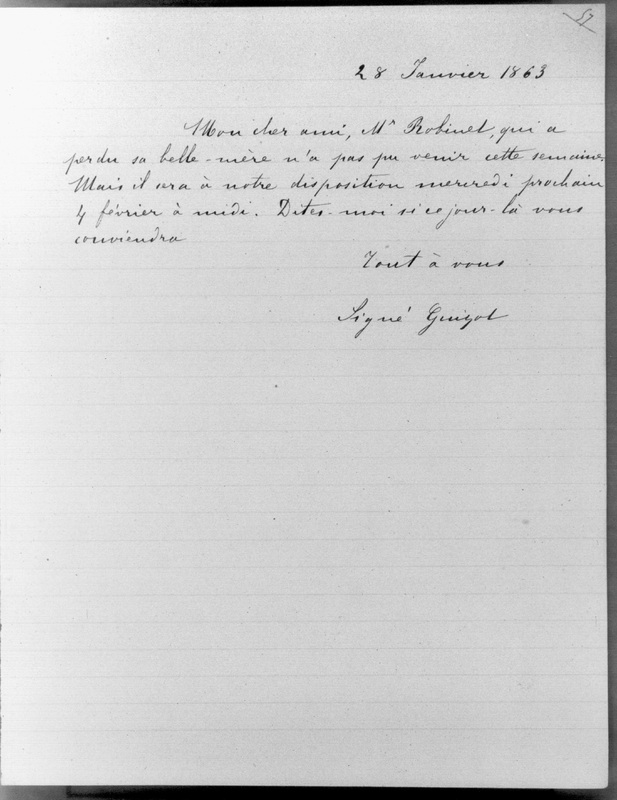 57
28 Janvier 1863
Mon cher ami, Mr Robinet, qui a
perdu sa belle-mère n'a pas pu venir cette semaine.
Mais il sera à notre disposition mercredi prochain
4 février à midi. Dites-moi si ce jour-là vous
conviendra
Tout à vous
Signé Guizot